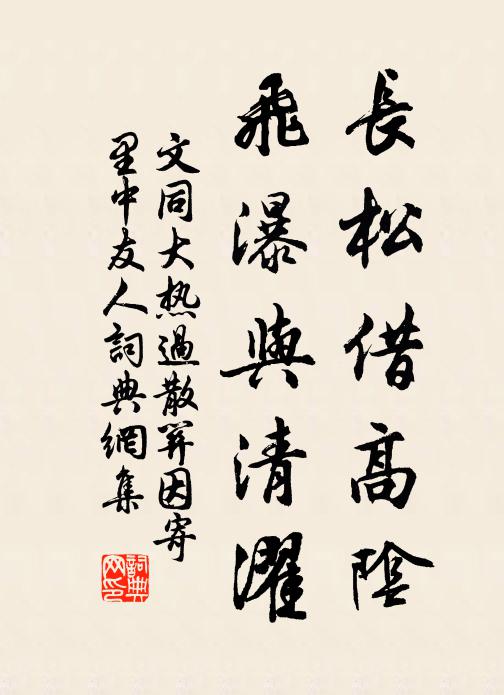 長松借高陰
飛瀑與清濯
文同大热過散關因寄
里中友人詞典網集
詞典網印